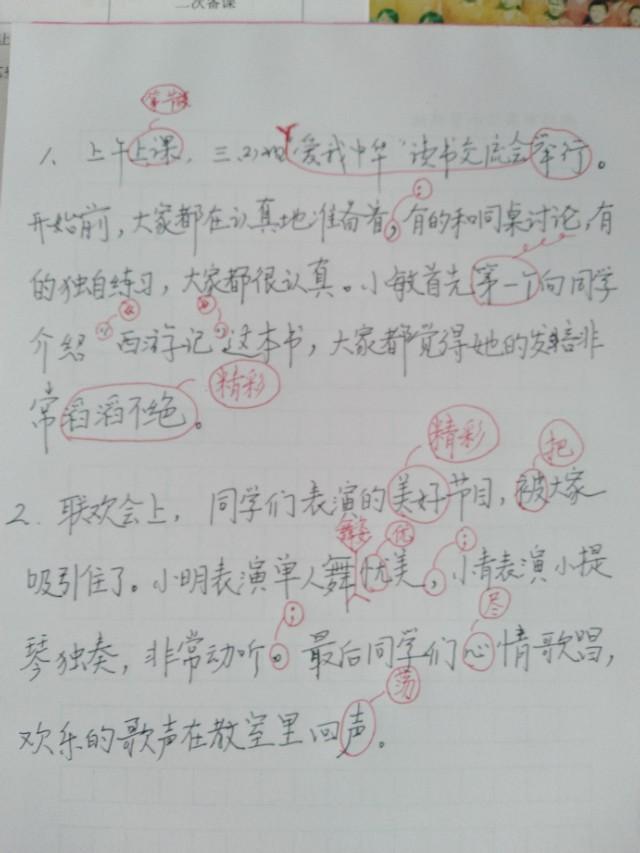 二次备课
1、上午上课,三(2)班"爱我中华"读书交流会举行。
;
开始前,大家都在认真地准备着,有的和同桌讨论,有
的独自练习,大家都很认真。小敏首先第一个向同学
《 》
介绍"西游记"这本书,大家都觉得她的发言非
精彩
常滔滔不绝。
精彩 把
2. 联欢会上,同学们表演的美好节目,被大家
舞姿 优 ;
吸引住了。小明表演单人舞忧美,小青表演小提
; 尽
琴独奏,非常动听。最后同学们心情歌唱,
荡
欢乐的歌声在教室里回声。